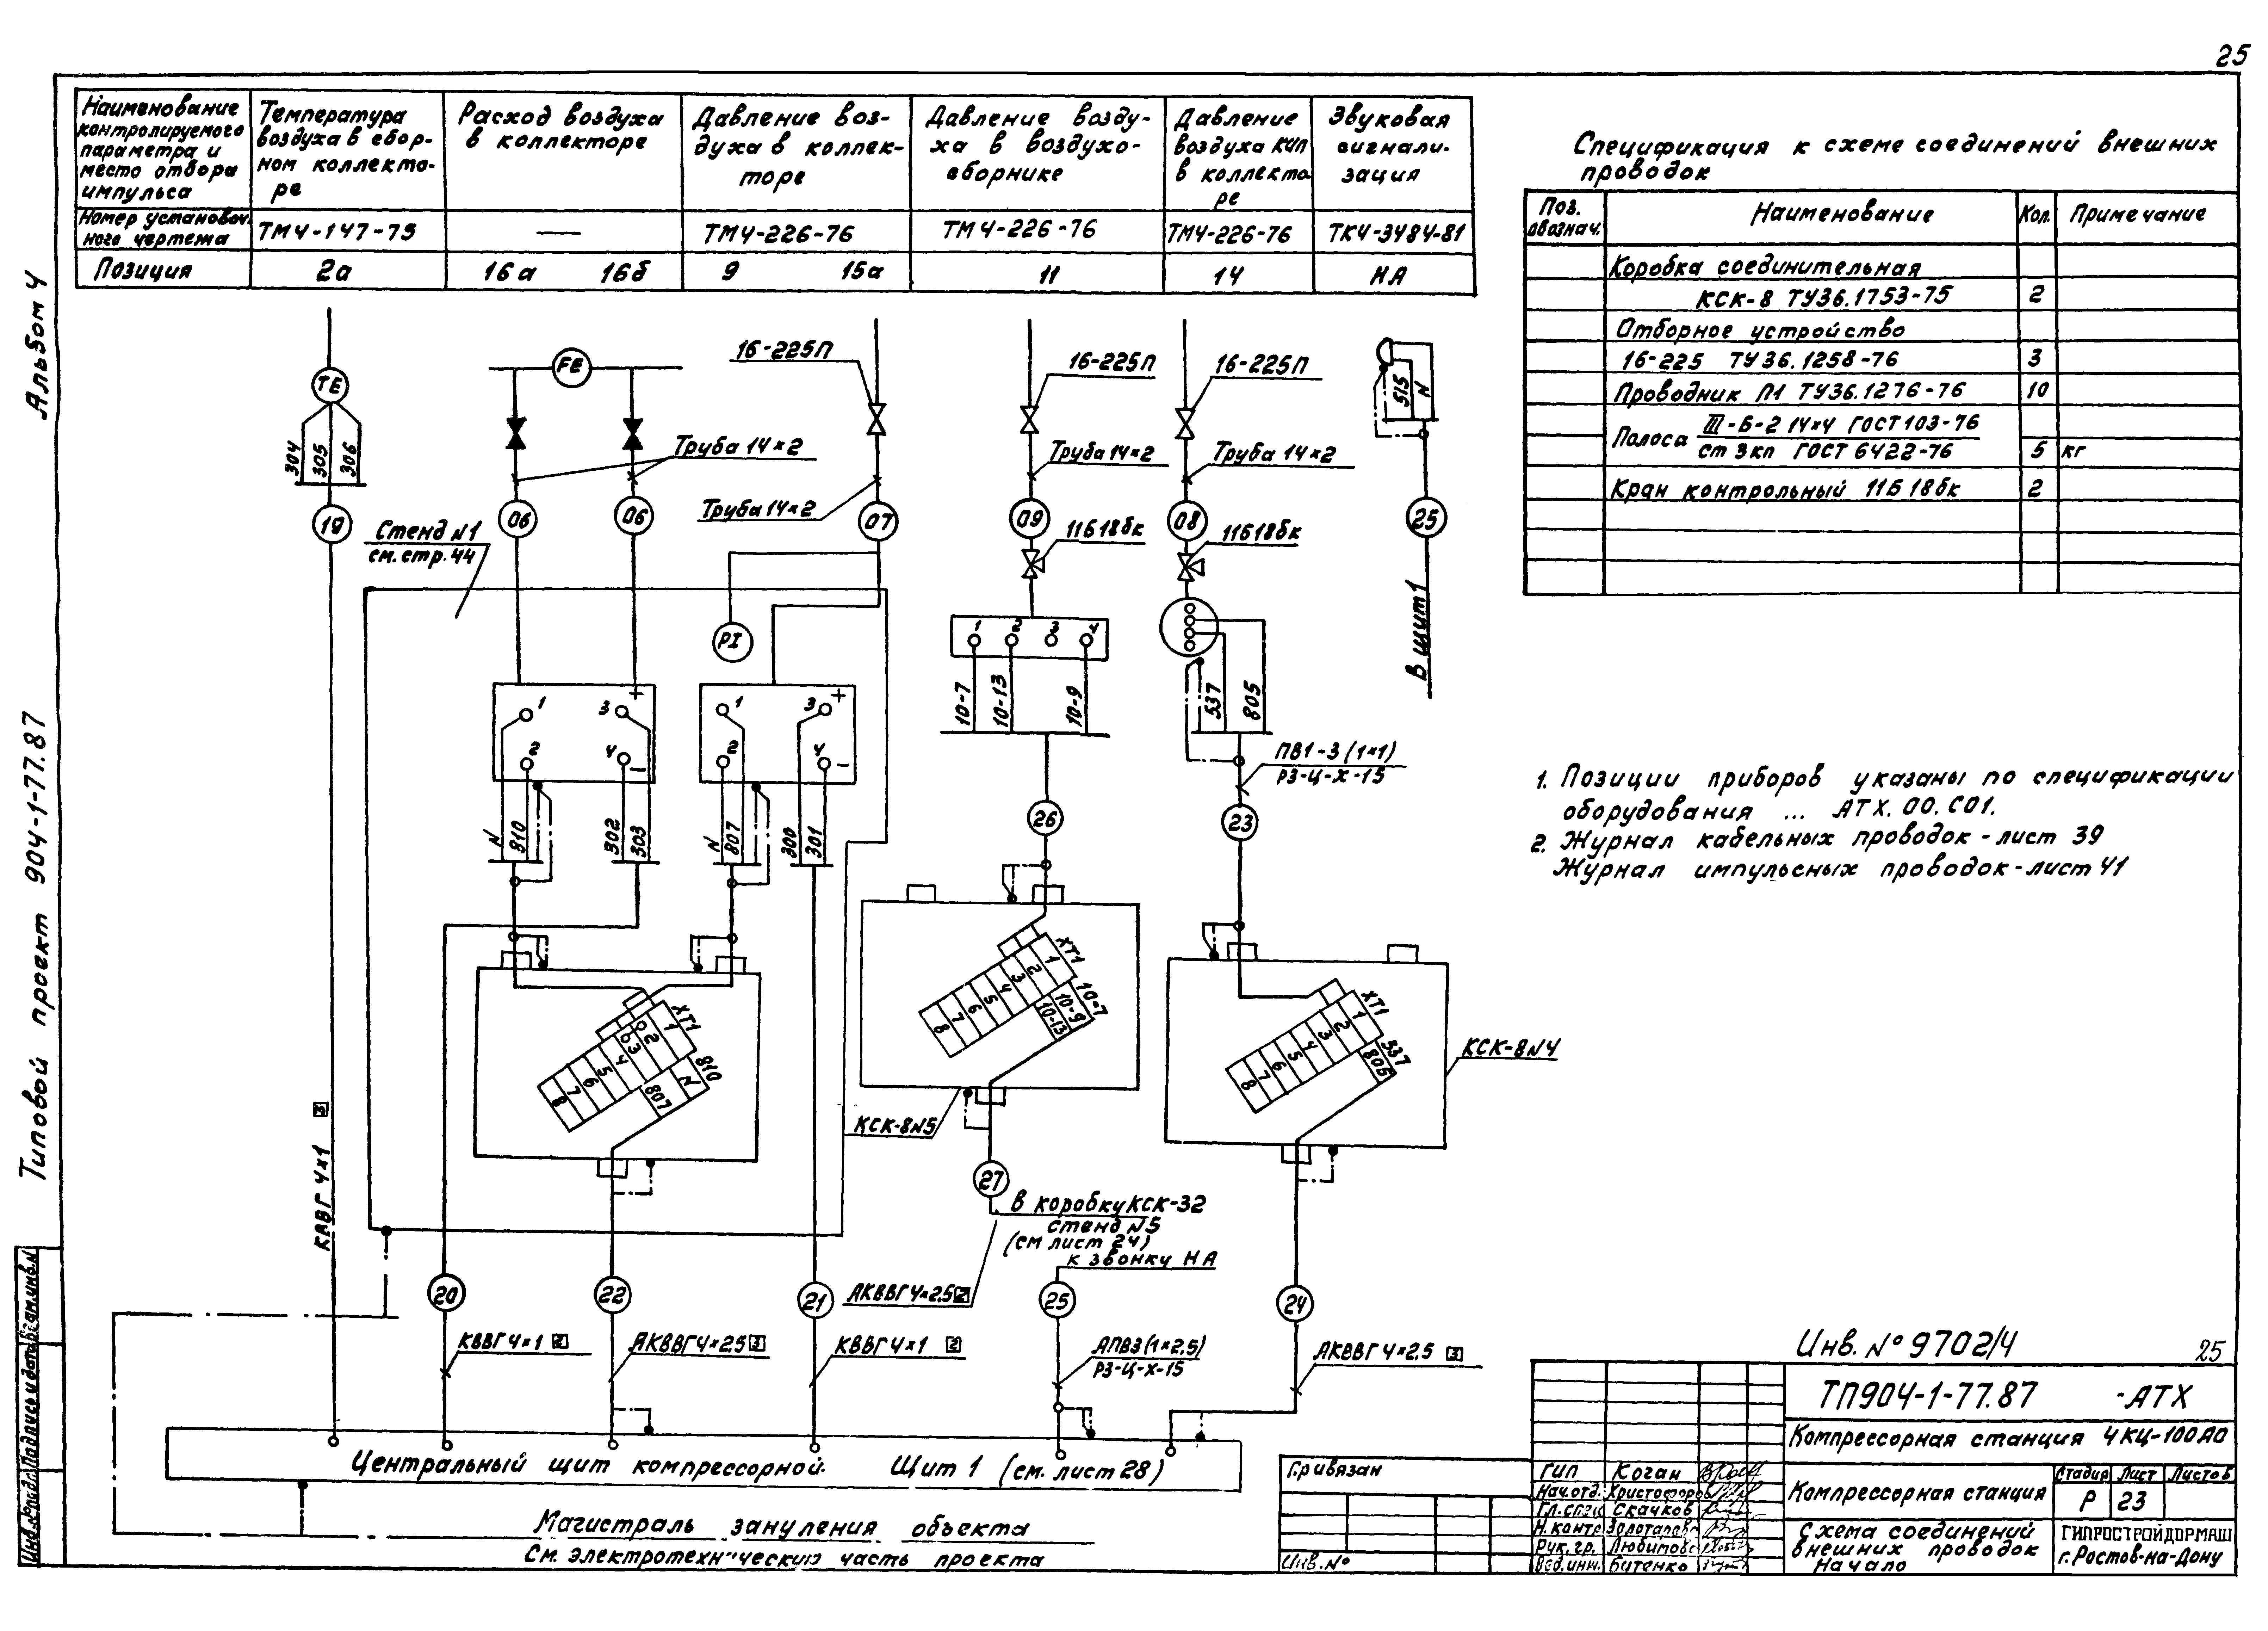 25
Альбом 4
Типовой проект 904-1-77.87
Наименование
контролируемого
параметра и
место отбора
импульса
Температура
воздуха в сбор-
ном коллекто-
ре
Расход воздуха
в коллекторе
Давление воз-
духа в коллек-
торе
Давление возду-
ха в воздухо-
сборнике
Давление
воздуха КИП
в коллекто
ре
Звуковая
сигнали-
зация
Номер установоч.
ного чертежа
ТМ4-147-75
—
ТМ4-226-76
ТМ4-226-76
ТМ4-226-76
ТК4-3484-81
Позиция
2а
16а 16б
9 15а
11
14
НА
Спецификация к схеме соединений внешних
проводок
Поз.
обознач.
Наименование
Кол.
Примечание
Коробка соединительная
КСК-8 ТУ36.1753-75 2
Отборное устройство
16-225 ТУ36.1258-76 3
Проводник П1 ТУ36.1276-76 10
Полоса III-Б-2 14×4 ГОСТ103-76
ст 3кп ГОСТ 6422-76 5 кг
Кран контрольный 11Б18бк 2
TE
FE
16-225П
16-225П
16-225П
515
N
304
305
306
Труба 14×2
Труба 14×2
Труба 14×2
Труба 14×2
19
06
06
07
09
08
25
Стенд N1
см. стр. 44
11Б18бк
11Б18бк
PI
В щит 1
1 2 3 4
10-7
10-13
10-9
537
805
1
3 +
2
4 -
1
3 +
2
4 -
N
810
302
303
N
807
300
301
ПВ1-3 (1×1)
РЗ-Ц-Х-15
26
23
1. Позиции приборов указаны по спецификации
оборудования ... АТХ.00.С01.
2. Журнал кабельных проводок - лист 39
Журнал импульсных проводок - лист 41
ХТ1
1 2 3 4 5 6 7 8
810
N
807
ХТ1
1 2 3 4 5 6 7 8
10-7
10-9
10-13
ХТ1
1 2 3 4 5 6 7 8
537
805
КСК-8N4
КСК-8N5
КВВГ 4×1 3
27
В коробку КСК-32
стенд N5
(см лист 24)
к звонку НА
АКВВГ 4×2.5 2
20
22
21
25
24
КВВГ 4×1 2
АКВВГ 4×2.5 3
КВВГ 4×1 2
АПВ3(1×2,5)
РЗ-Ц-Х-15
АКВВГ 4×2.5 3
Центральный щит компрессорной. Щит 1 (см. лист 28)
Магистраль зануления объекта
См. электротехническую часть проекта
Привязан
Инв. N°
Инв. N° 9702/4 25
ТП904-1-77.87 -АТХ
Компрессорная станция 4КЦ-100А0
Компрессорная станция
Стадия Лист Листов
Р 23
Схема соединений
внешних проводок
Начало
ГИПРОСТРОЙДОРМАШ
г. Ростов-на-Дону
ГИП Коган
Нач.отд. Христофоров
Гл.спец Скачков
Н.контр
Рук. гр.
Вед.инж. Бутенко
Инв.№подл. Подпись и дата Взам.инв.N